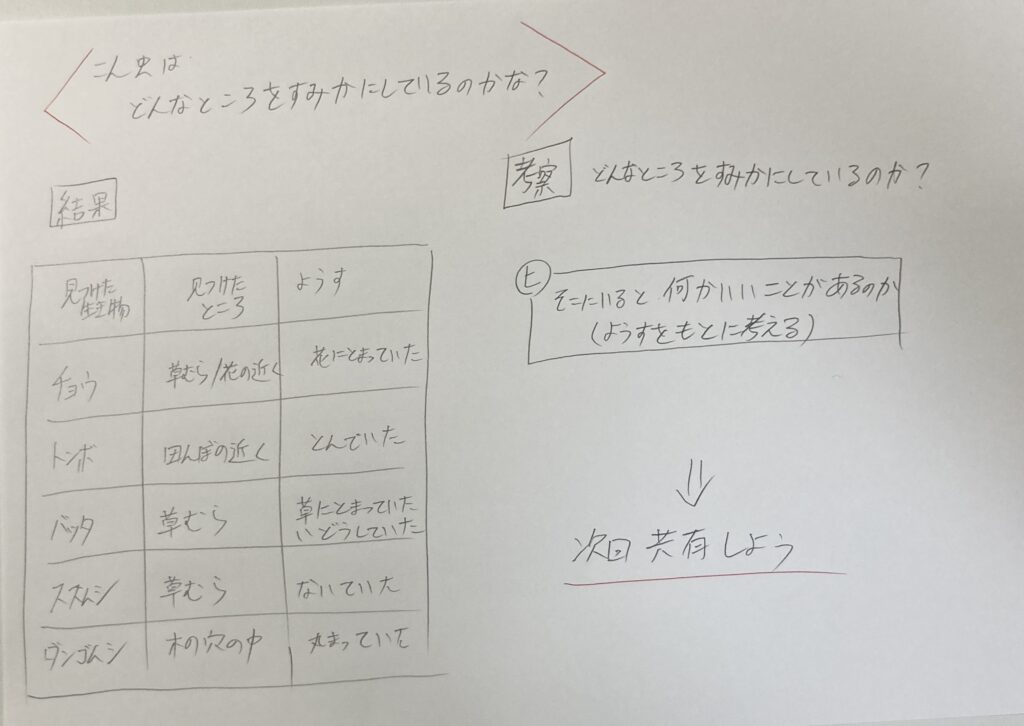 こん虫は
どんなところをすみかにしているのかな?
結果
見つけた
生き物
見つけた
ところ
ようす
チョウ
草むら/花の近く
花にとまっていた
トンボ
田んぼの近く
とんでいた
バッタ
草むら
草にとまっていた
いどうしていた
スズムシ
草むら
ないていた
ダンゴムシ
木の穴の中
丸まっていた
考察 どんなところをすみかにしているのか?
ヒ
そこにいると何かいいことがあるのか
(ようすをもとに考える)
⇓
次回 共有しよう